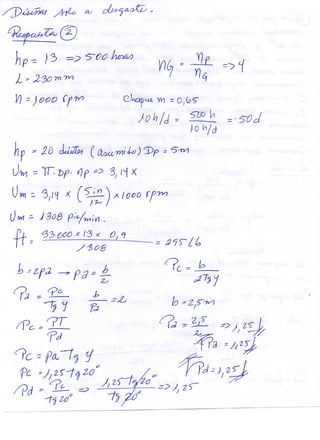 Diseño solo a desgaste.
Respuesta (2)
hp = 13 => 500 horas
nG = np/nG => 4
L = 230 mm
n = 1000 rpm
Chaque m = 0,65
10 h/d = 500 h / 10 h/d = 50 d
hp = 20 dientes (asumido) Dp = 5m
Um = π. Dp. np => 3,14 x
Um = 3,14 x (5in/12) x 1000 rpm
Um = 1308 pie/min.
ft = 33.000 x 13 x 0,9 / 1308 = 295 Lb
b = 2pa → pa = b/2
Pc = b / 2Tg y
Pa = Pc / Tg y
b / Pa = 2
b = 2,5 m
Pc = PT / Pd
Pa = 2,5 / 2 => 1,25
Pa = 1,25
Pc = Pa Tg y
Pc = 1,25 Tg 20°
Pd = 1,25
Pd = Pc / Tg 20° => 1,25 Tg 20° / Tg 20° => 1,25